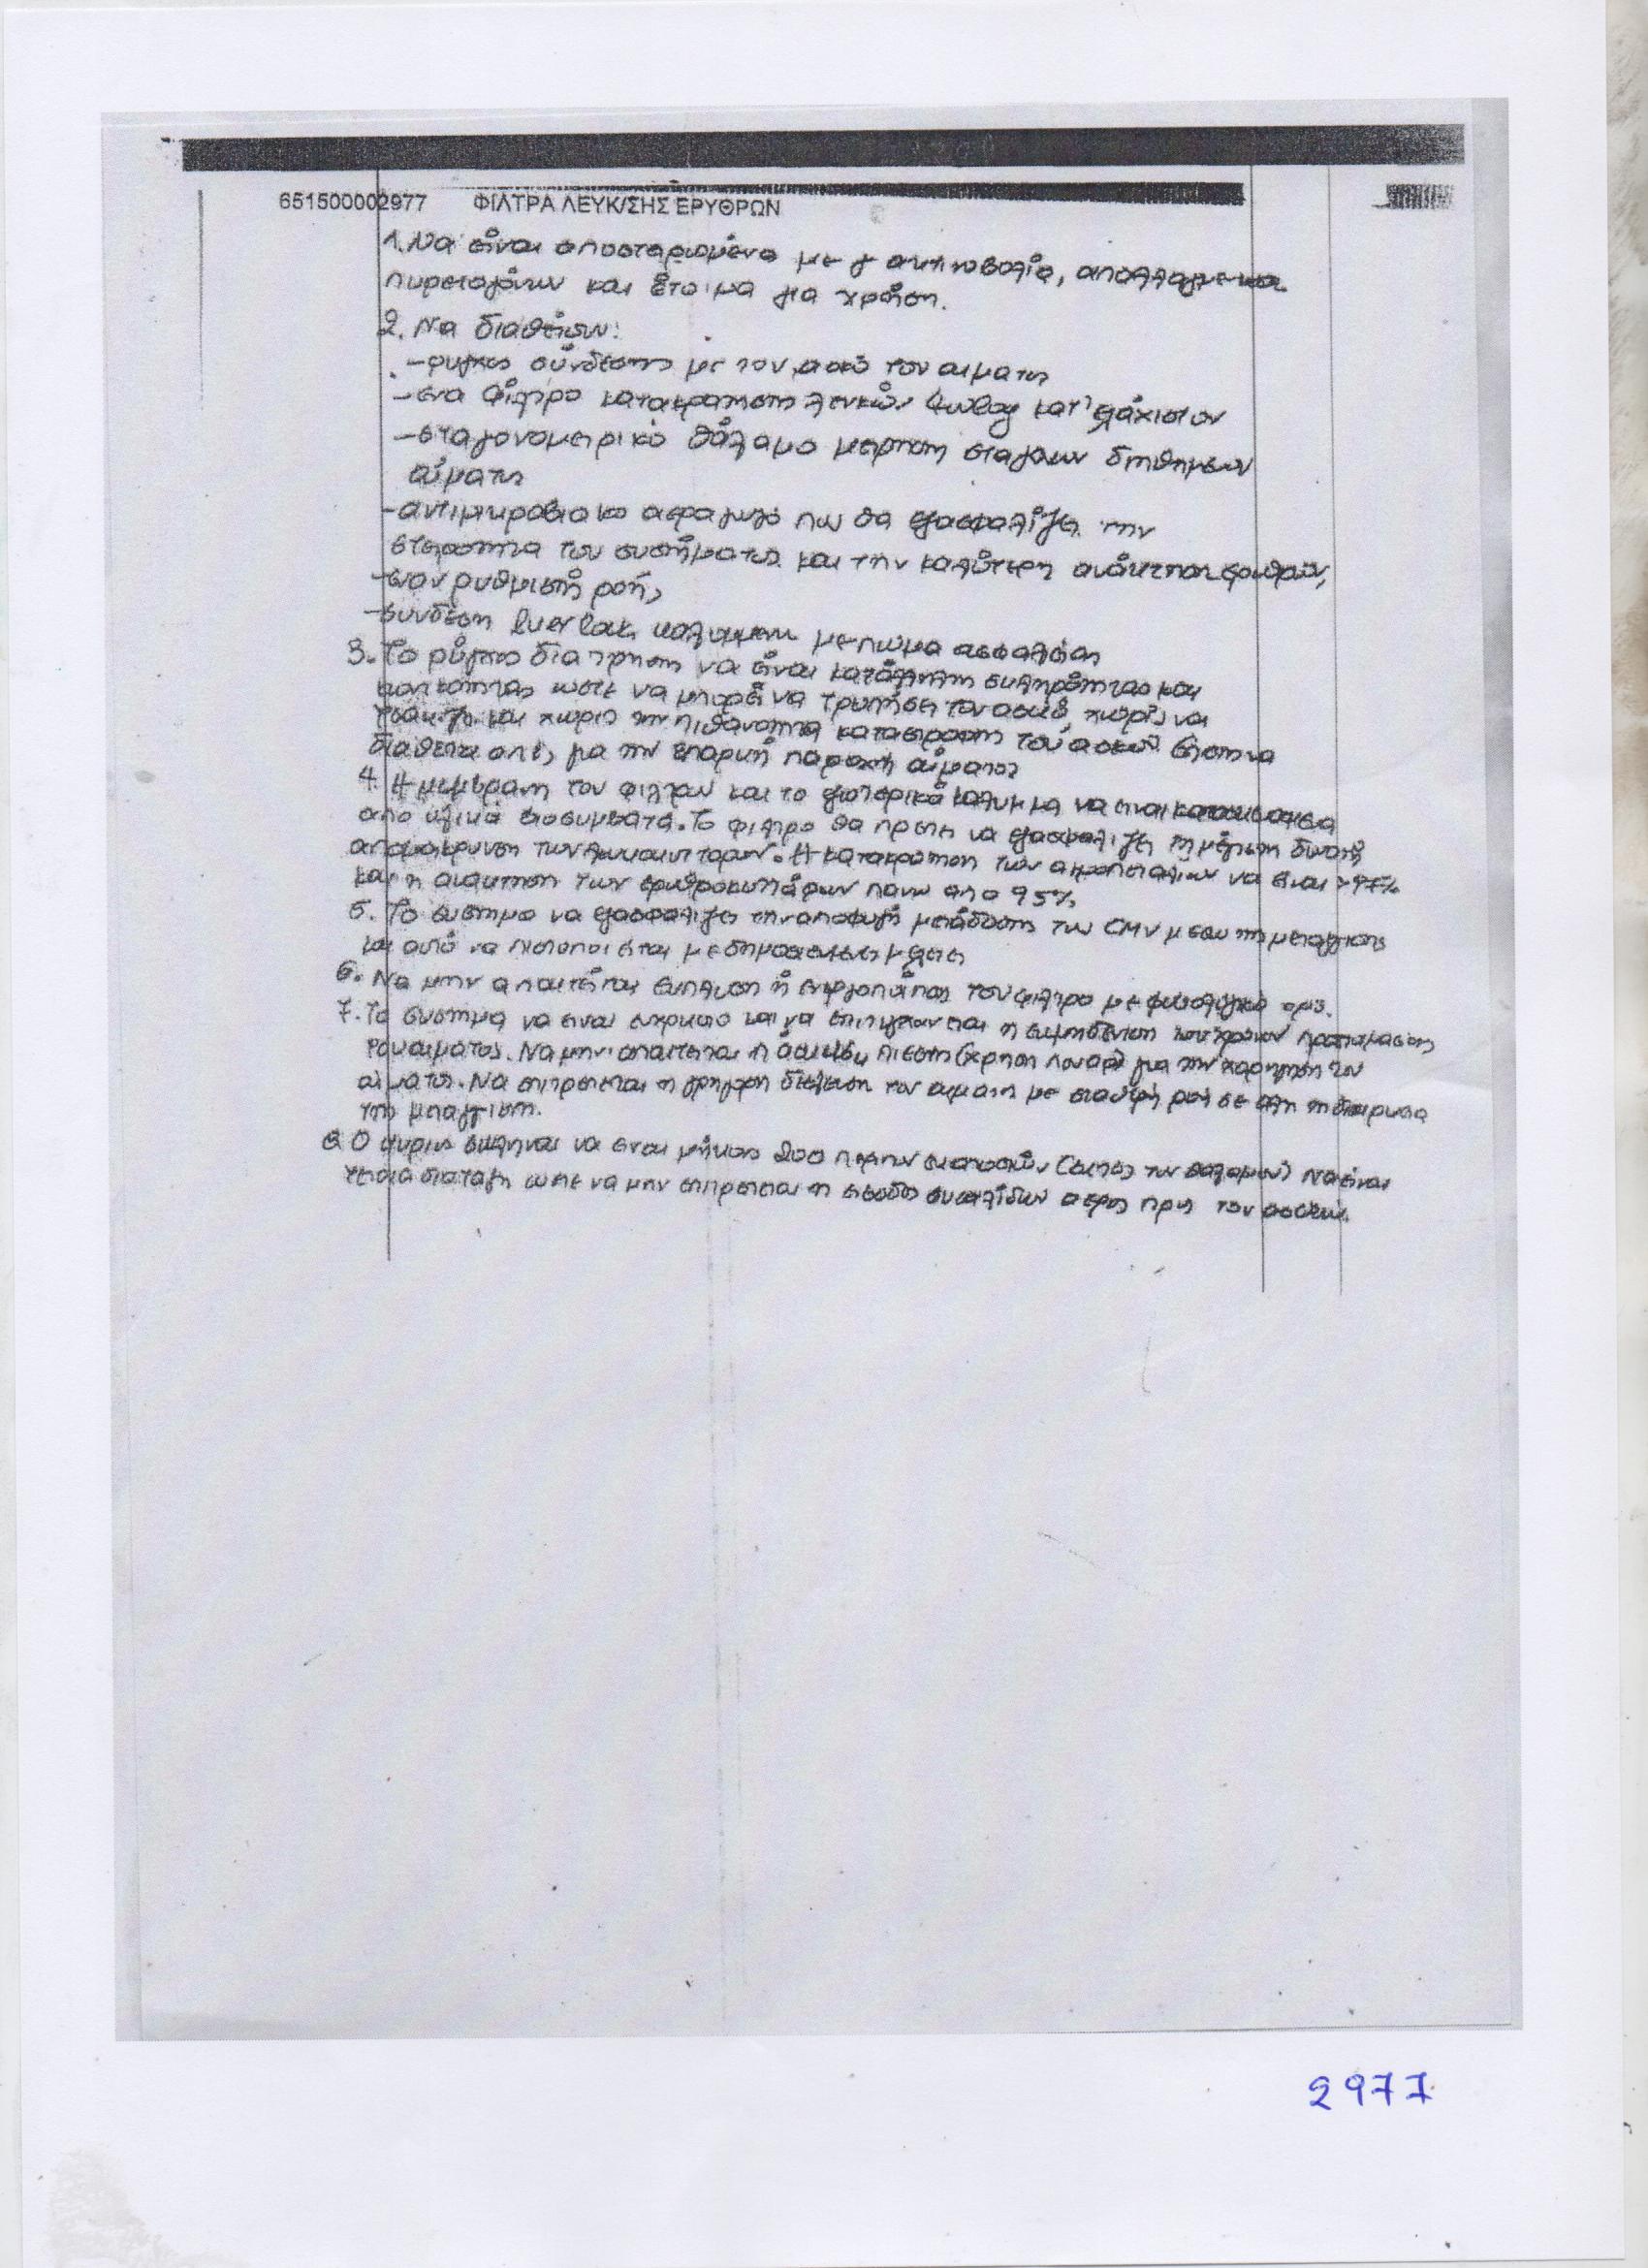 651500002977 ΦΙΛΤΡΑ ΛΕΥΚ/ΣΗΣ ΕΡΥΘΡΩΝ
1. Να είναι αποστειρωμένα με γ ακτινοβολία, απαλλαγμένα
πυρετογόνων και έτοιμα για χρήση.
2. Να διαθέτουν:
-ρυγχος σύνδεσης με τον ασκό του αιματος
-ενα φίλτρο κατακράτησης λευκών κατ' ελάχιστον
-σταγονομετρικό θάλαμο μετρηση σταγόνων διηθημένων
αίματος
-αντιμικροβιακο αεραγωγό που θα εξασφαλίζει την
στειροτητα του συστήματος και την καλύτερη ανάκτηση ερυθρών,
-εναν ρυθμιστή ροής
-συνδεση luer lock καλυμμενη με πώμα ασφαλείας
3. Το ρύγχος διατρησης να είναι κατάλληλης σκληρότητας και
ωστε να μπορεί να τρυπήσει τον ασκό χωρίς να
και χωρις την πιθανοτητα καταστροφης του ασκού
διαθετει οπές για την επαρκή παροχή αίματος
4. Η μεμβρανη του φιλτρου και το εξωτερικό καλυμμα να ειναι κατασκευασμενα
απο υλικά βιοσυμβατά. Το φιλτρο θα πρεπει να εξασφαλιζει τη μέγιστη δυνατή
απομάκρυνση των λευκοκυτταρων. Η κατακρατηση των αιμοπεταλιων να ειναι >97%
και η ανακτηση των ερυθροκυττάρων πανω απο 95%
5. Το συστημα να εξασφαλιζει την αποφυγή μετάδοσης του CMV μεσω της μεταγγισης
και αυτό να πιστοποιειται με δημοσιευμενες μελετες
6. Να μην απαιτείται εκπλυση ή ενεργοποίησης του φιλτρο με φυσιολογικό ορο.
7. Το συστημα να ειναι ευχρηστο και να επιτυγχανεται η εκμηδενιση του χρονου προετοιμασιας
του αιματος. Να μην απαιτειται η άσκηση πιεσης (χρηση πουαρ) για την χορηγηση του
αίματος. Να επιτρεπεται η γρηγορη διελευση του αιματος με σταθερή ροή σε ολη τη διαρκεια
της μεταγγισης.
8. Ο κυριως σωληνας να ειναι μήκους 200 περιπου εκατοστών (εκτος του θαλαμου) Να είναι
τετοια διαταξη ωστε να μην επιτρεπεται η εισοδος φυσαλίδων αερος προς τον ασθενή.
2977